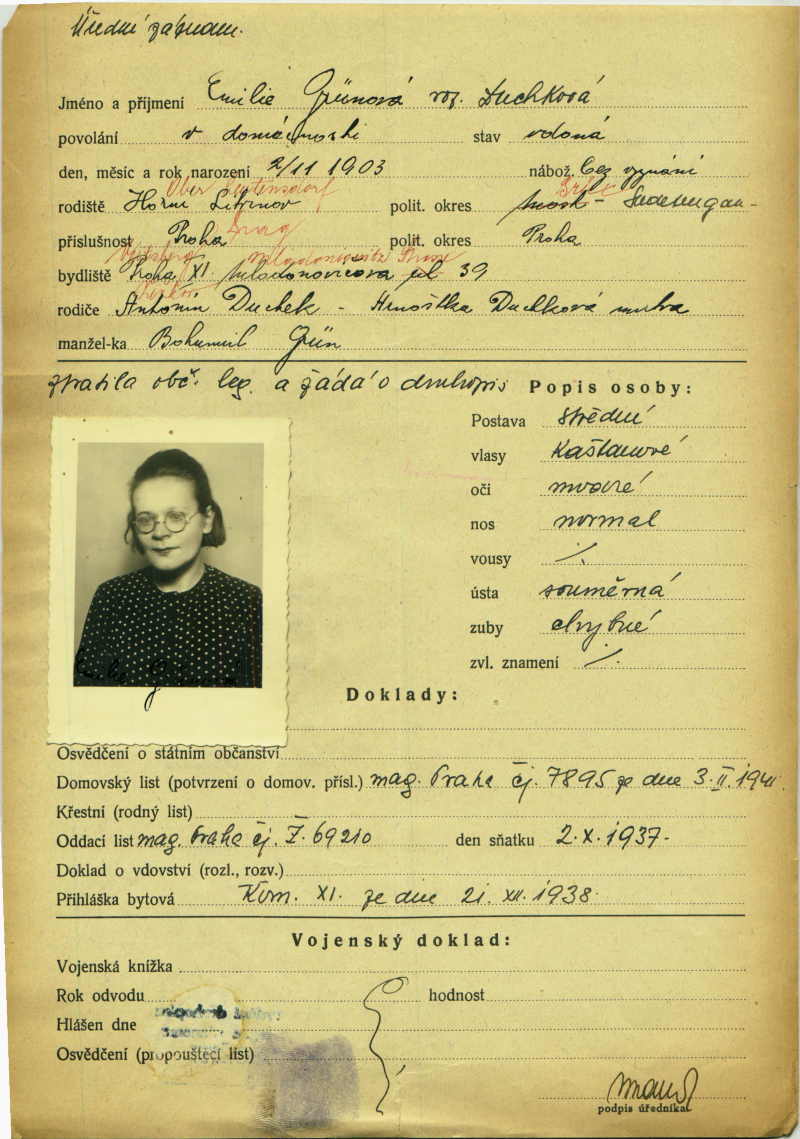 Úřední záznam.
Jméno a příjmení Emilie Grünová roz. Duchková
povolání v domácnosti stav vdaná
den, měsíc a rok narození 2/11 1903 nábož. bez vyznání
Ober Leutensdorf Brüx
rodiště Horní Litvínov polit. okres Most - Sudetengau-
Prag
příslušnost Praha polit. okres Praha
bydliště Praha XI. Mladoňovicova ul 39
rodiče Antonín Duchek - Arnoštka Duchková
manžel-ka Bohumil Grün
ztratila obč. leg. a žádá o druhopis Popis osoby:
Postava střední
vlasy kaštanové
oči modré
nos normal
vousy ⁒
ústa souměrná
zuby chybné
zvl. znamení ⁒
Emilie Grünová
Doklady:
Osvědčení o státním občanství
Domovský list (potvrzení o domov. přísl.) mag. Praha čj. 7895 ze dne 3. II. 1941
Křestní (rodný list)
Oddací list mag. Praha čj. Ž. 69210 den sňatku 2. X. 1937-
Doklad o vdovství (rozl., rozv.)
Přihláška bytová Kom. XI. ze dne 21. XII. 1938
Vojenský doklad:
Vojenská knížka
Rok odvodu hodnost
Hlášen dne
Osvědčení (propouštěcí list)
podpis úředníka